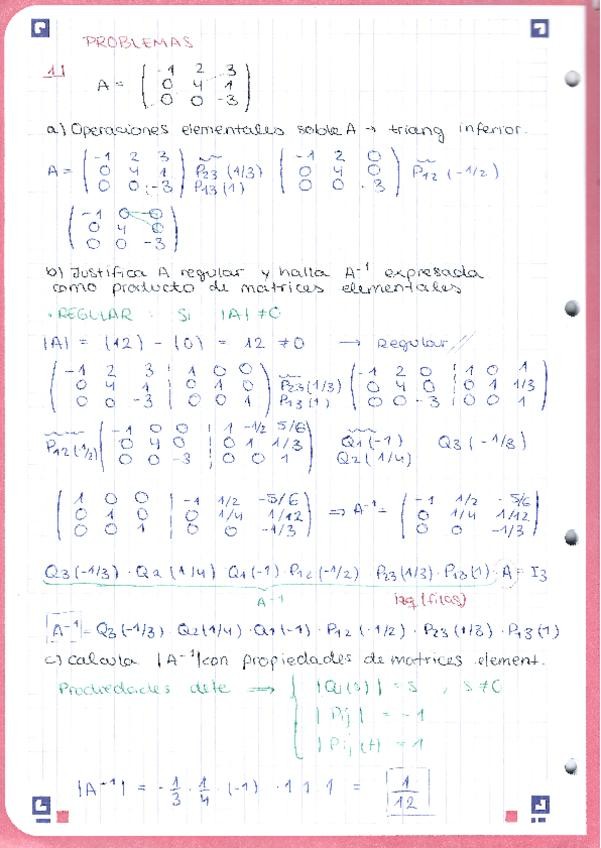 PROBLEMAS
1)
A = ( -1 2 3
0 4 1
0 0 -3 )
a) Operaciones elementales sobre A → triang inferior.
A = ( -1 2 3 P23 (1/3) ( -1 2 0 P12 (-1/2)
0 4 1 P13 (1) 0 4 0
0 0 -3 ) 0 0 -3 )
( -1 0 0
0 4 0
0 0 -3 )
b) Justifica A regular y halla A-1 expresada
como producto de matrices elementales
· REGULAR: Si |A| ≠ 0
|A| = (12) - (0) = 12 ≠ 0 → Regular //
( -1 2 3 | 1 0 0 P23 (1/3) ( -1 2 0 | 1 0 1
0 4 1 | 0 1 0 P13 (1) 0 4 0 | 0 1 1/3
0 0 -3 | 0 0 1 ) 0 0 -3 | 0 0 1 )
P12 (-1/2) ( -1 0 0 | 1 -1/2 5/6 Q1 (-1) Q3 (-1/3)
0 4 0 | 0 1 1/3 Q2 (1/4)
0 0 -3 | 0 0 1 )
( 1 0 0 | -1 1/2 -5/6 ⇒ A-1 = ( -1 1/2 -5/6
0 1 0 | 0 1/4 1/12 0 1/4 1/12
0 0 1 | 0 0 -1/3 ) 0 0 -1/3 )
Q3 (-1/3) · Q2 (1/4) Q1 (-1) · P12 (-1/2) P23 (1/3) · P13 (1) · A = I3
A-1 izq (filas)
A-1 = Q3 (-1/3) · Q2 (1/4) · Q1 (-1) · P12 (-1/2) · P23 (1/3) · P13 (1)
c) Calcula |A-1| con propiedades de matrices element.
Propiedades dete ⇒ { |Qi(s)| = s , s ≠ 0
|Pij| = -1
|Pij (t)| = 1
|A-1| = - 1/3 · 1/4 · (-1) · 1 1 1 = 1/12